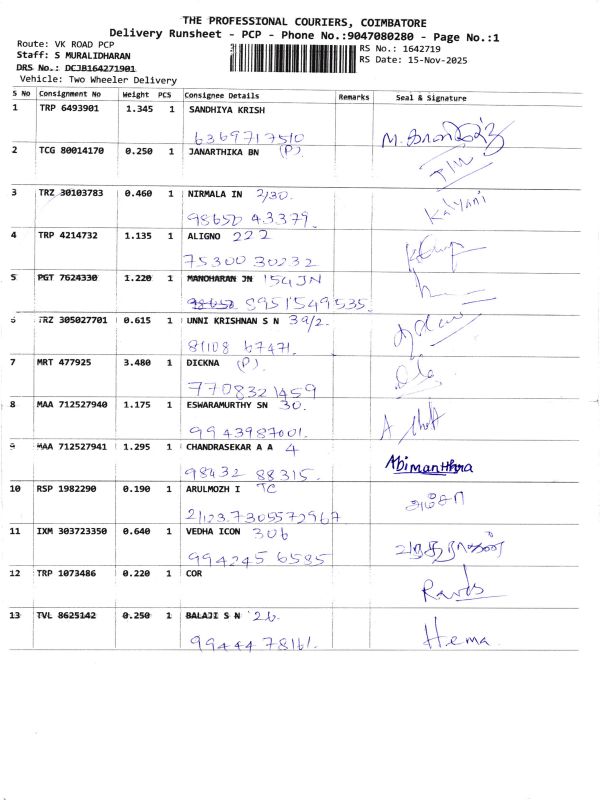 THE PROFESSIONAL COURIERS, COIMBATORE
Delivery Runsheet - PCP - Phone No.:9047080280 - Page No.:1
Route: VK ROAD PCP
RS No.: 1642719
Staff: S MURALIDHARAN
RS Date: 15-Nov-2025
DRS No.: DCJB164271901
Vehicle: Two Wheeler Delivery
S No Consignment No Weight PCS Consignee Details Remarks Seal & Signature
1 TRP 6493901 1.345 1 SANDHIYA KRISH
6369717510
2 TCG 80014170 0.250 1 JANARTHIKA BN (P)
3 TRZ 30103783 0.460 1 NIRMALA IN 2/30.
98650 43379. Kalyani
4 TRP 4214732 1.135 1 ALIGNO 222
75300 30232
5 PGT 7624330 1.220 1 MANOHARAN JN 154 JN
8951549535.
6 TRZ 305027701 0.615 1 UNNI KRISHNAN S N 39/2.
81108 67471.
7 MRT 477925 3.480 1 DICKNA (P)
7708321459
8 MAA 712527940 1.175 1 ESWARAMURTHY SN 30.
9943987001.
9 MAA 712527941 1.295 1 CHANDRASEKAR A A 4
98432 88315. Abimanthra
10 RSP 1982290 0.190 1 ARULMOZH I TC
2/123.7305572967
11 IXM 303723350 0.640 1 VEDHA ICON 306
994245 6585 வரதராகன்
12 TRP 1073486 0.220 1 COR
13 TVL 8625142 0.250 1 BALAJI S N 26.
99444 78161. Hema